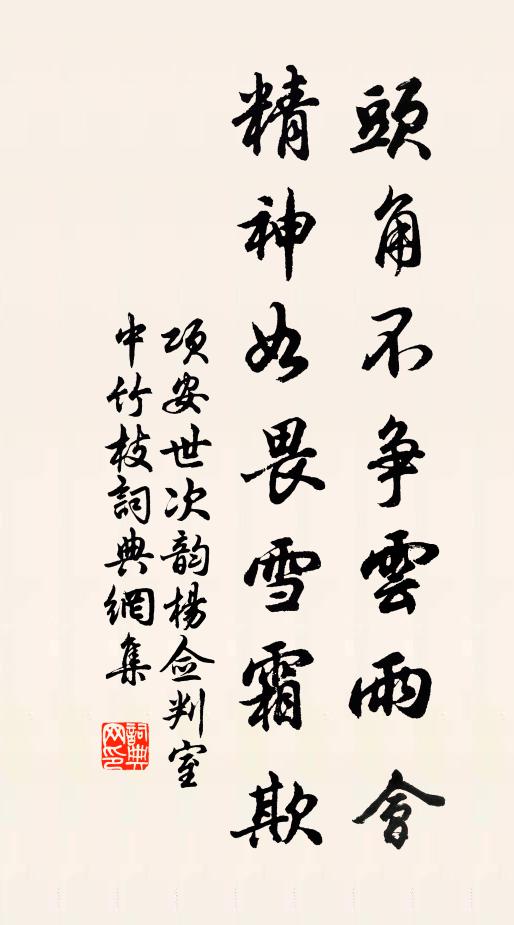 頭角不争雲雨會
精神如畏雪霜欺
項安世次韵楊僉判室
中竹枝詞典網集
詞典
网印